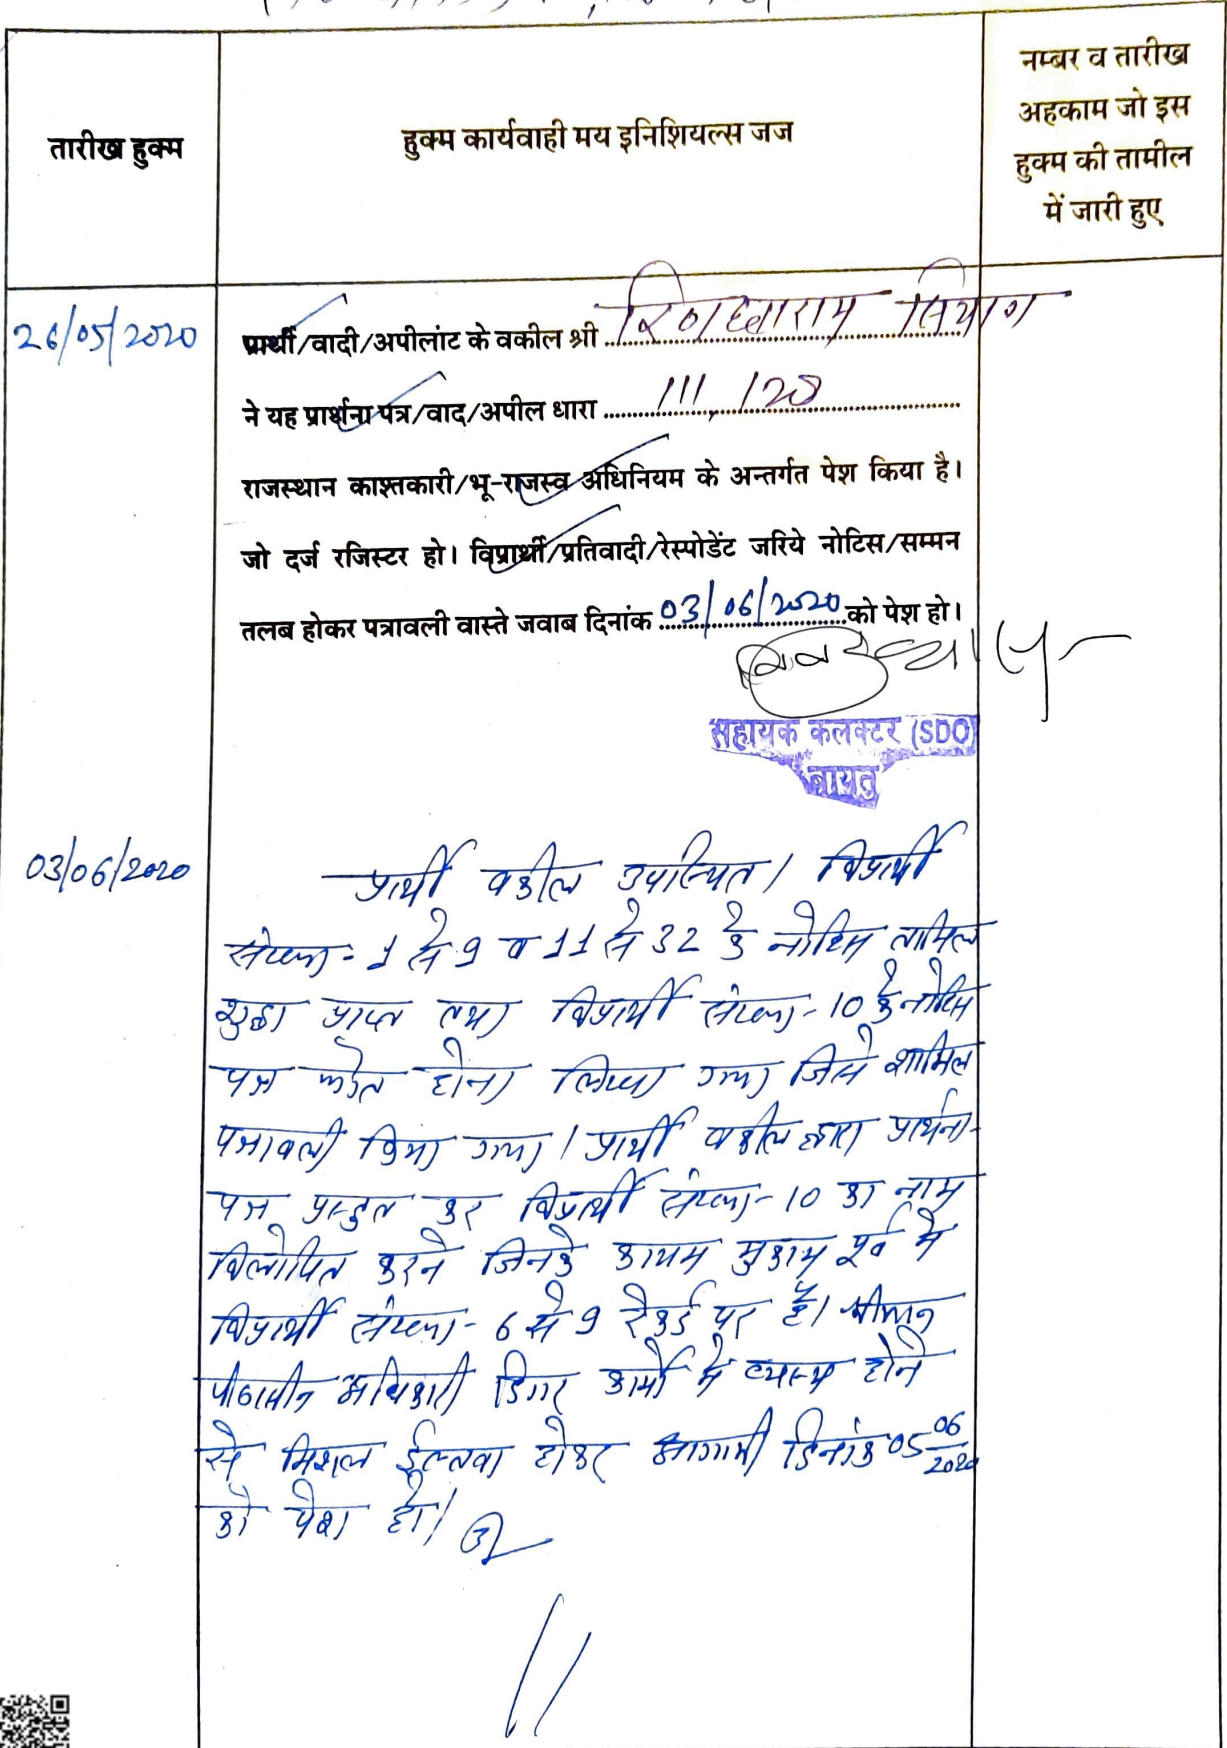 तारीख हुक्म
हुक्म कार्यवाही मय इनिशियल्स जज
नम्बर व तारीख
अहकाम जो इस
हुक्म की तामील
में जारी हुए
26/05/2020
प्रार्थी/वादी/अपीलांट के वकील श्री सियाग
ने यह प्रार्थना पत्र/वाद/अपील धारा 111, 128
राजस्थान काश्तकारी/भू-राजस्व अधिनियम के अन्तर्गत पेश किया है।
जो दर्ज रजिस्टर हो। विप्रार्थी/प्रतिवादी/रेस्पोडेंट जरिये नोटिस/सम्मन
तलब होकर पत्रावली वास्ते जवाब दिनांक 03/06/2020 को पेश हो।
सहायक कलक्टर (SDO)
बायतु
03/06/2020
प्रार्थी वकील उपस्थित। विप्रार्थी
संख्या-1 से 9 व 11 से 32 के नोटिस तामिल
शुदा प्राप्त तथा विप्रार्थी संख्या-10 के नोटिस
पत्र फोत होना लिखा गया जिसे शामिल
पत्रावली किया गया। प्रार्थी वकील द्वारा प्रार्थना-
पत्र प्रस्तुत कर विप्रार्थी संख्या-10 का नाम
विलोपित करने जिनके कायम मुकाम पूर्व मे
विप्रार्थी संख्या-6 से 9 रेकर्ड पर है। श्रीमान
पीठासीन अधिकारी डिगर कार्यो मे व्यस्थ होने
से मिशल ईल्तवा होकर आगामी दिनांक 05/06/2020
को पेश हो।